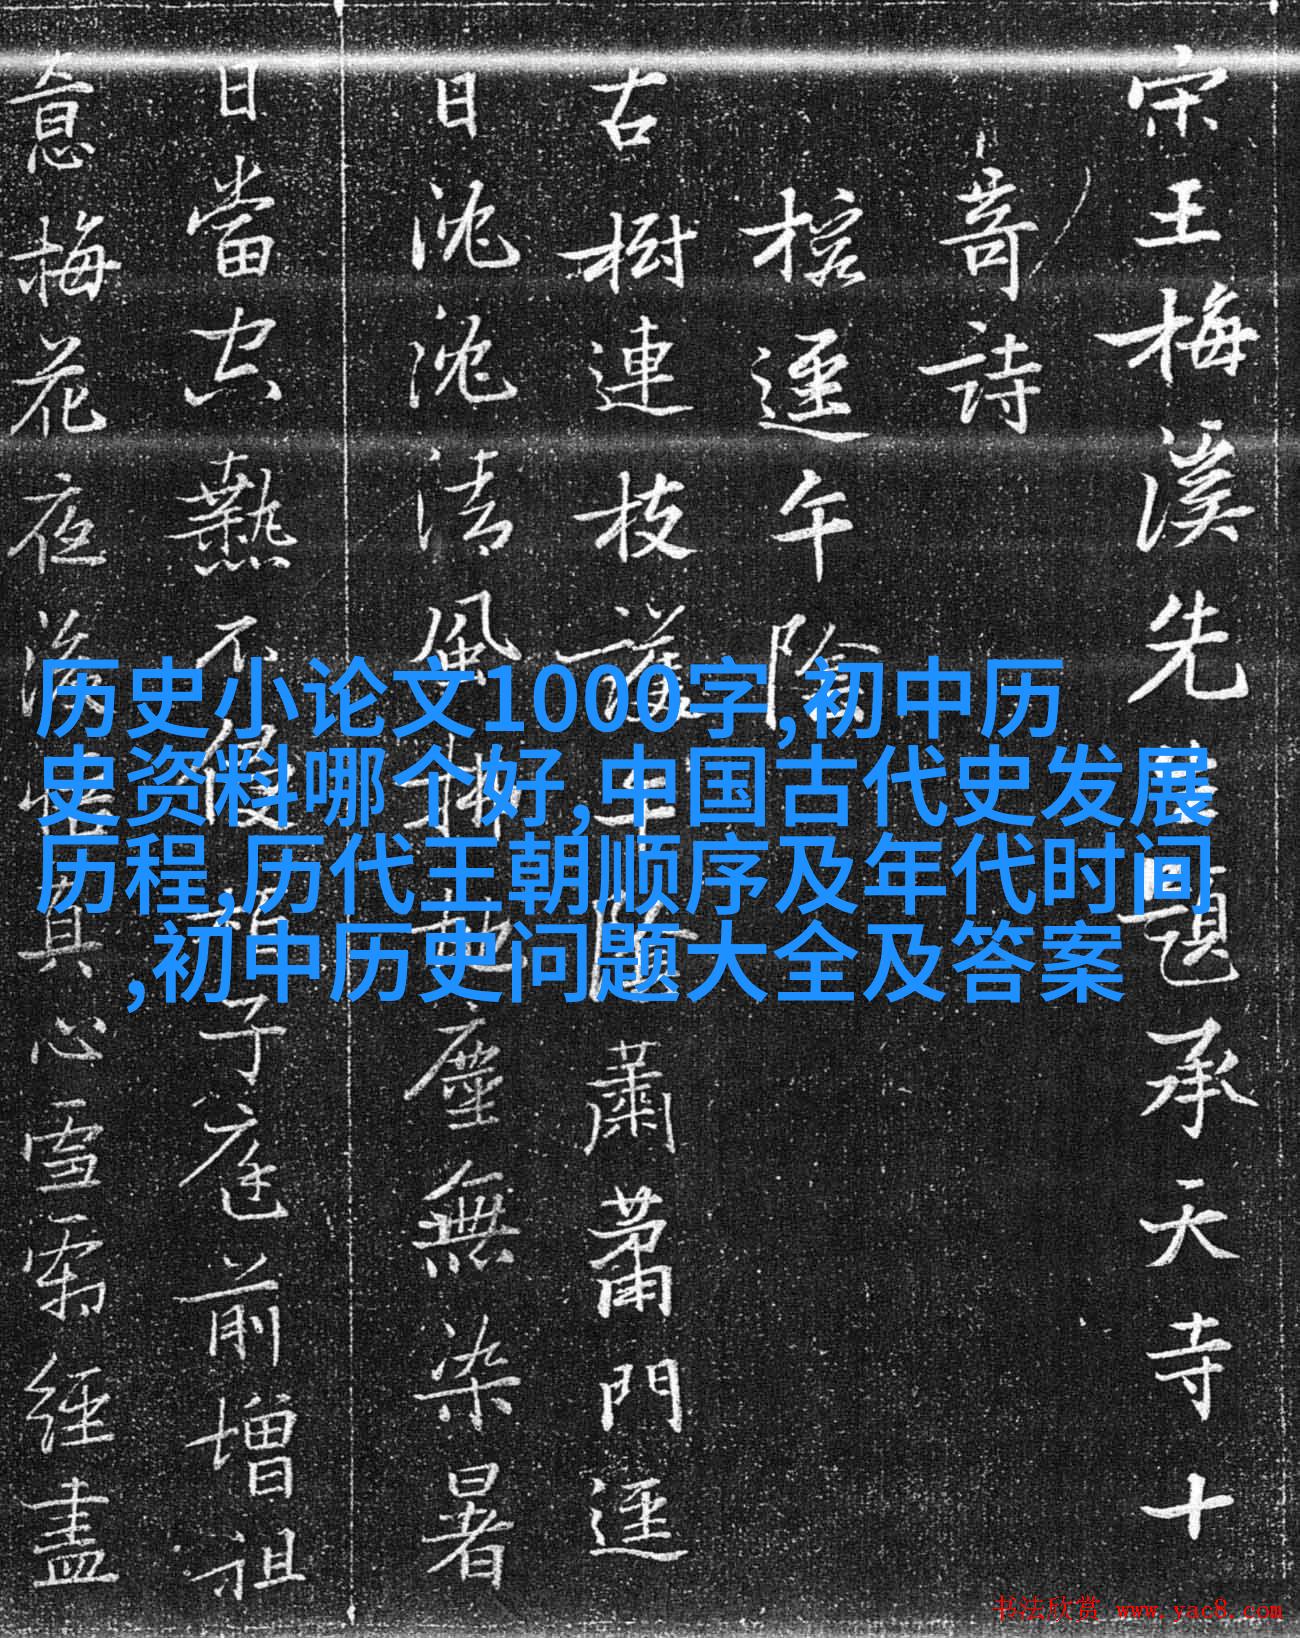 宋王梅溪先生題承天寺十
奇詩
榕逕午陰
古樹連枝護午陰蕭蕭門逕
日沈沈清風掃地塵無染暑
日當空熱不侵子庭前增祖
意梅花夜真心雪霜經盡
历史小论文1000字,初中历
史资料哪个好,中国古代史发展
历程,历代王朝顺序及年代时间
,初中历史问题大全及答案
书法欣赏 www.yac8.com